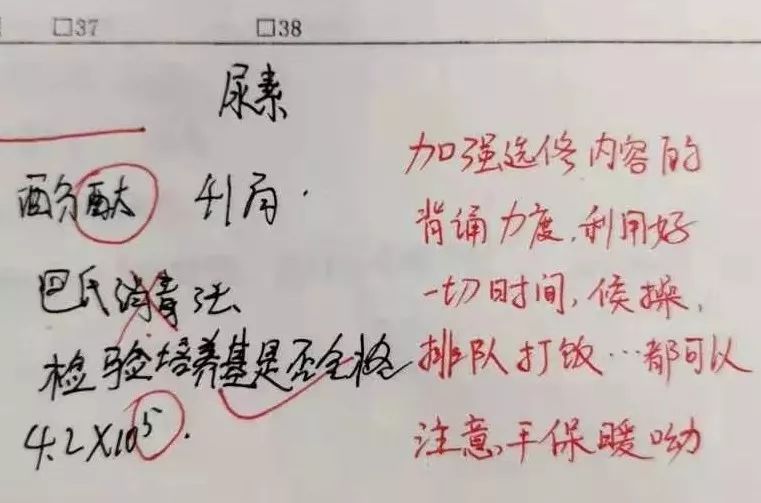 □37 □38
尿素
酚酞 引风.
巴氏消毒法
检验培养基是否合格
4.2×10⁵.
加强选修内容的
背诵力度,利用好
一切时间,候操,
排队打饭…都可以
注意手保暖呦